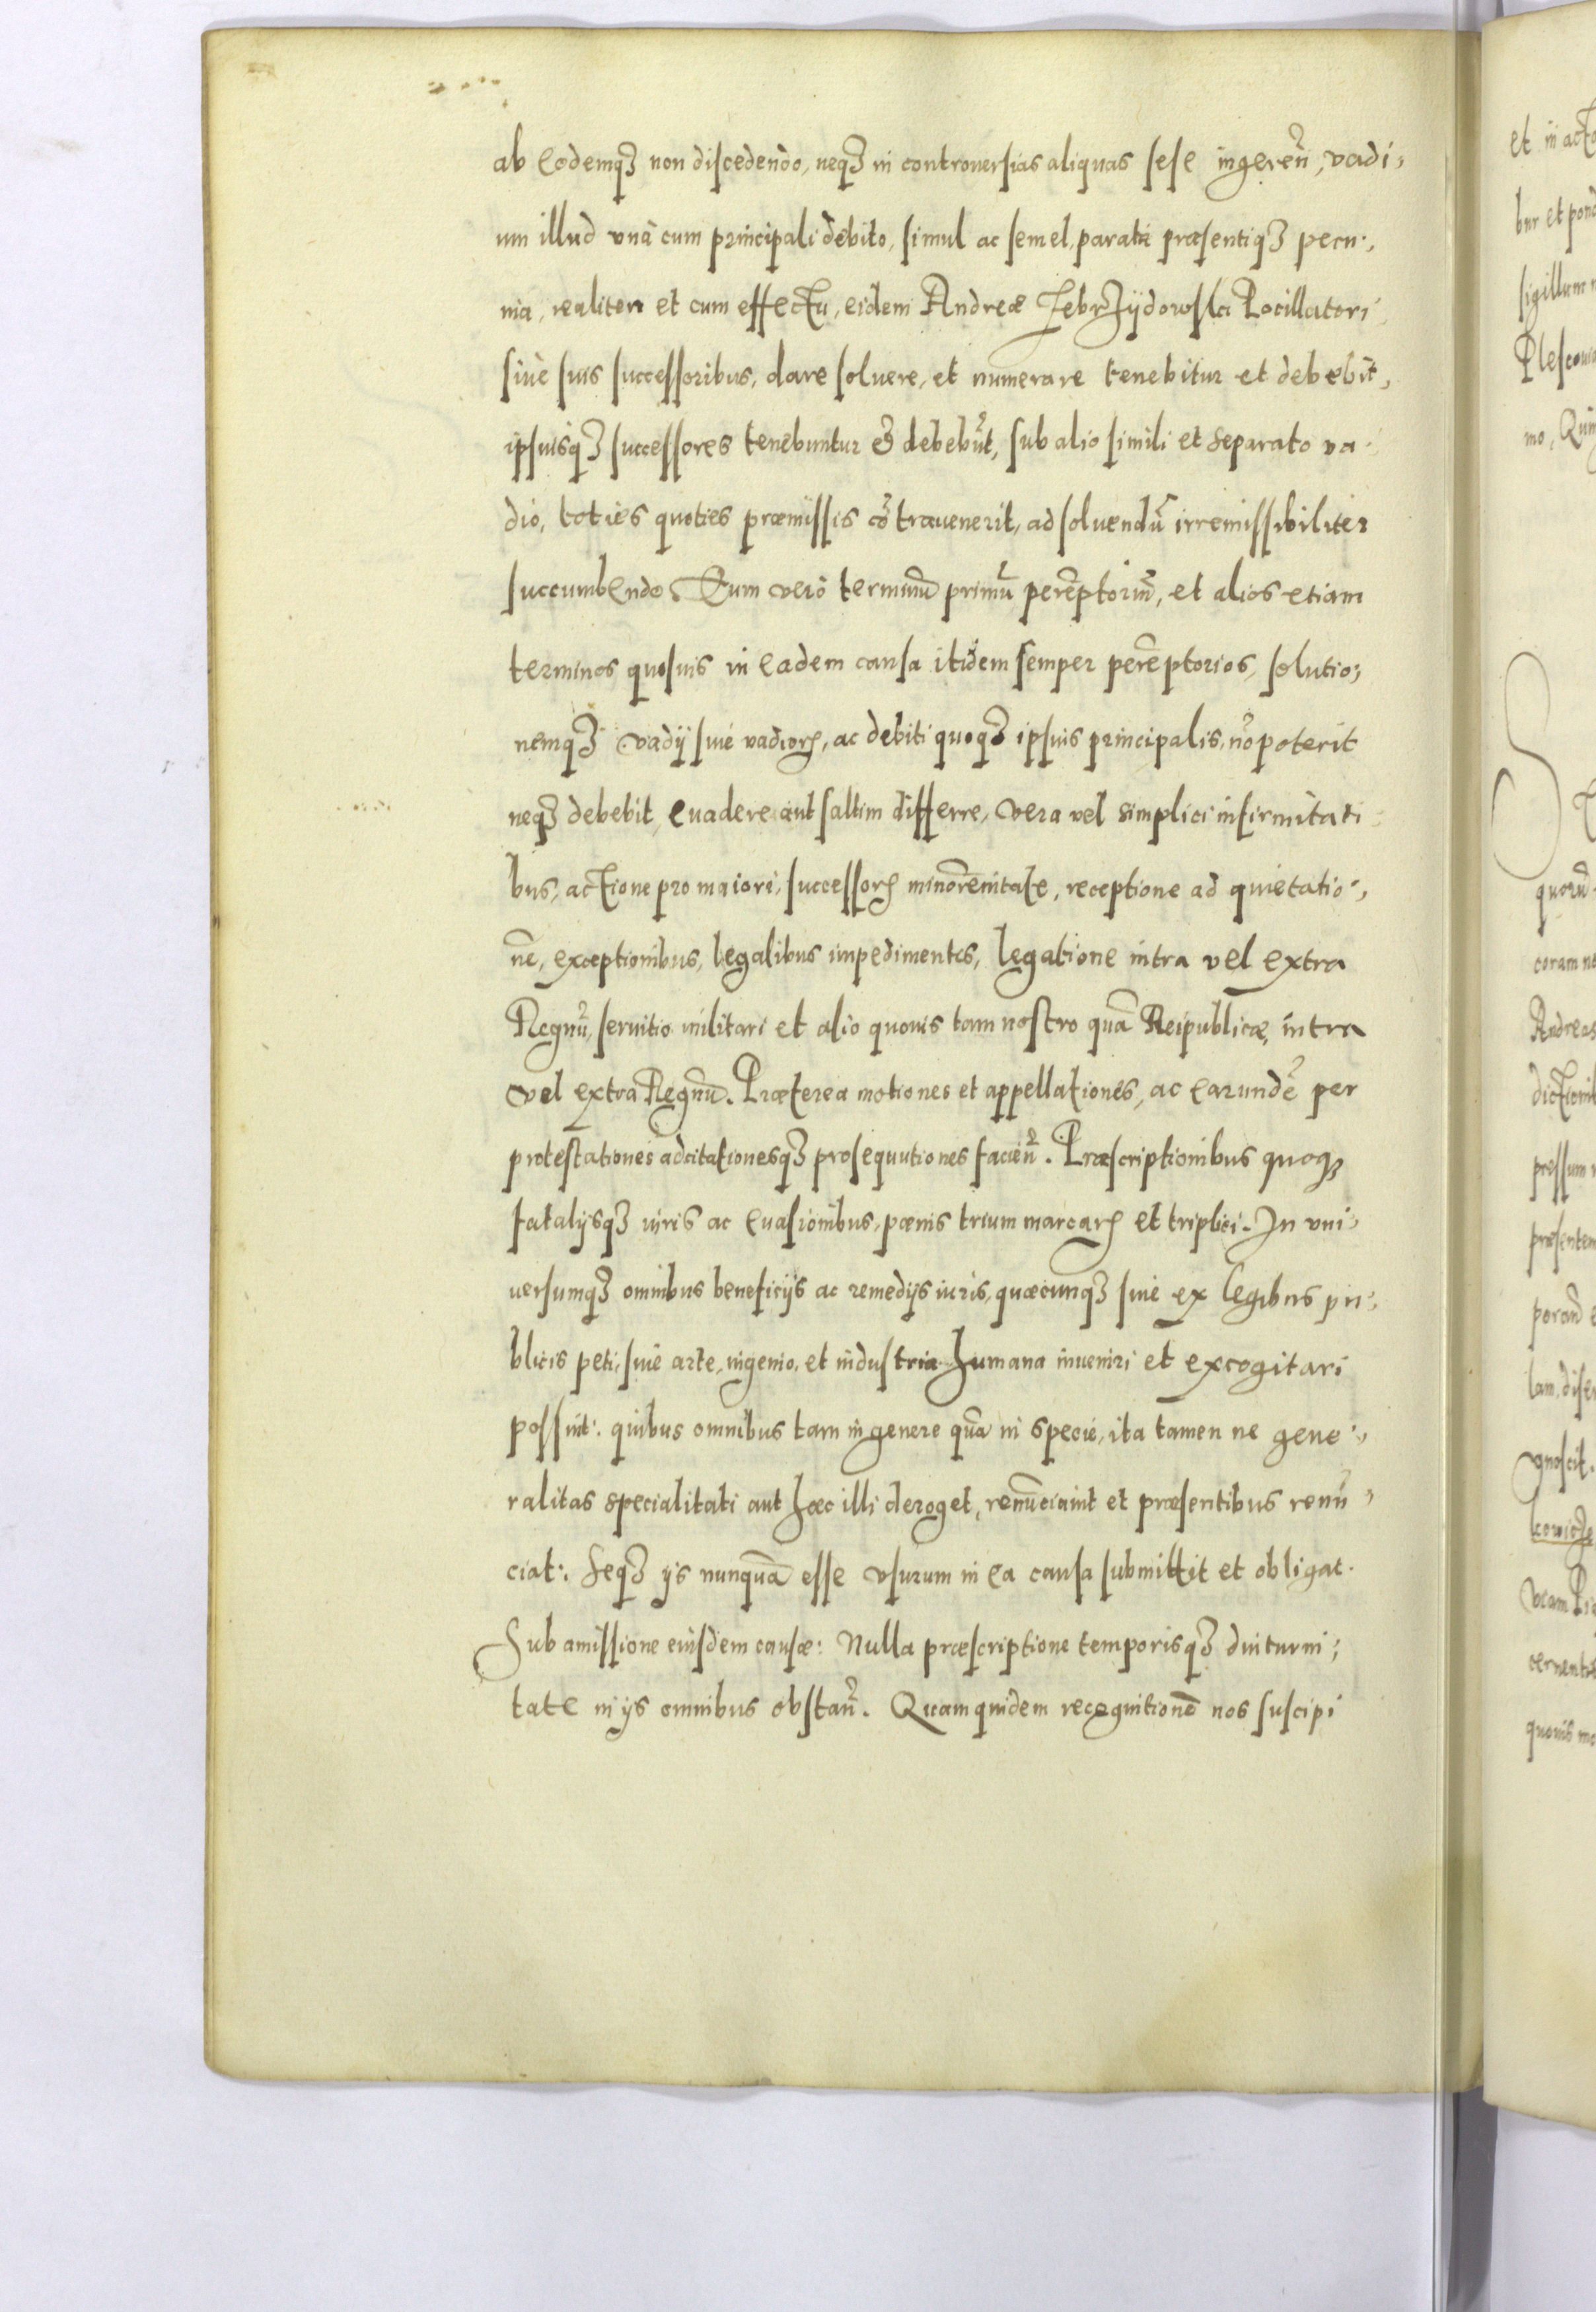 ab eodemq3 non discedendo, neq3 in controuersias aliquas sese ingereñ, vadi,
um illud vnà cum principali debito, simul ac semel, parata præsentiq3 pecu,
nia, realiter et cum effectu, eidem Andreæ Zebrzÿdowski Pocillatori
siue suis successoribus, dare soluere, et numerare tenebitur et debebit,
ipsiusq3 successores tenebuntur & debebũt, sub alio simili et separato va
dio, toties quoties præmissis cõtrauenerit, ad soluendũ irremissibiliter
succumbendo. Eum verò terminũ primũ perẽptoriũ, et alios etiam
terminos quosuis in eadem causa itidem semper perẽptorios, solutio,
nemq3 vadÿ siue vadiorꝝ, ac debiti quoq3 ipsius principalis, nõ poterit
neq3 debebit, euadere aut saltim differre, vera vel simplici infirmitati
bus, actione pro maiori, successorꝝ minorẽnitate, receptione ad quietatio,
nẽ, exceptionibus, legalibus impedimentis, legatione intra vel extra
Regnũ, seruitio militari et alio quouis tam nostro quã Reipublicæ, intra
vel extra Regnũ. Præterea motiones et appellationes, ac earundẽ per
protestationes adcitationesq3 prosequutiones facieñ. Præscriptionibus quoq3
fatalÿsq3 iuris ac euasionibus, pœnis trium marcarꝝ et triplici. In vni,
uersumq3 omnibus beneficÿs ac remedÿs iuris, quæcunq3 siue ex legibus pu,
blicis peti, siue arte, ingenio, et industria humana inueniri et excogitari
possint: quibus omnibus tam in genere quã in specie, ita tamen ne gene,
ralitas specialitati aut hæc illi deroget, renũciauit et præsentibus renũ
ciat: Seq3 ÿs nunquã esse vsurum in ea causa submittit et obligat.
Sub amissione eiusdem causæ: Nulla præscriptione temporisq3 diuturni,
tate in ÿs omnibus obstañ. Quam quidem recognitionẽ nos suscipi